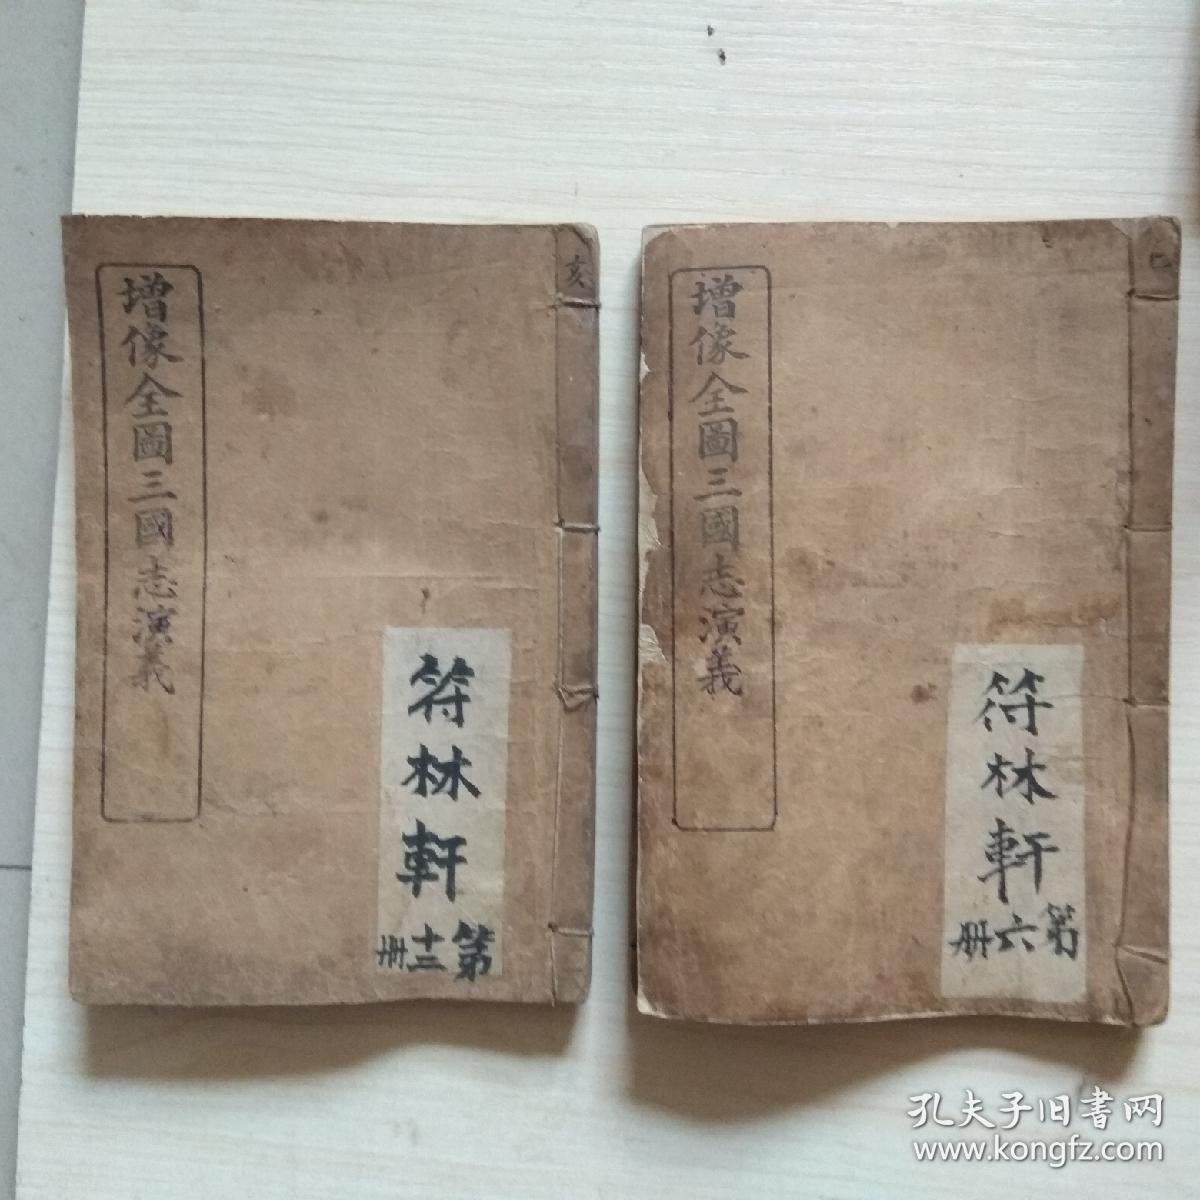 亥
增像全圖三國志演義
符林軒
第十二册
巳
增像全圖三國志演義
符林軒
第六册
孔夫子旧書网
www.kongfz.com